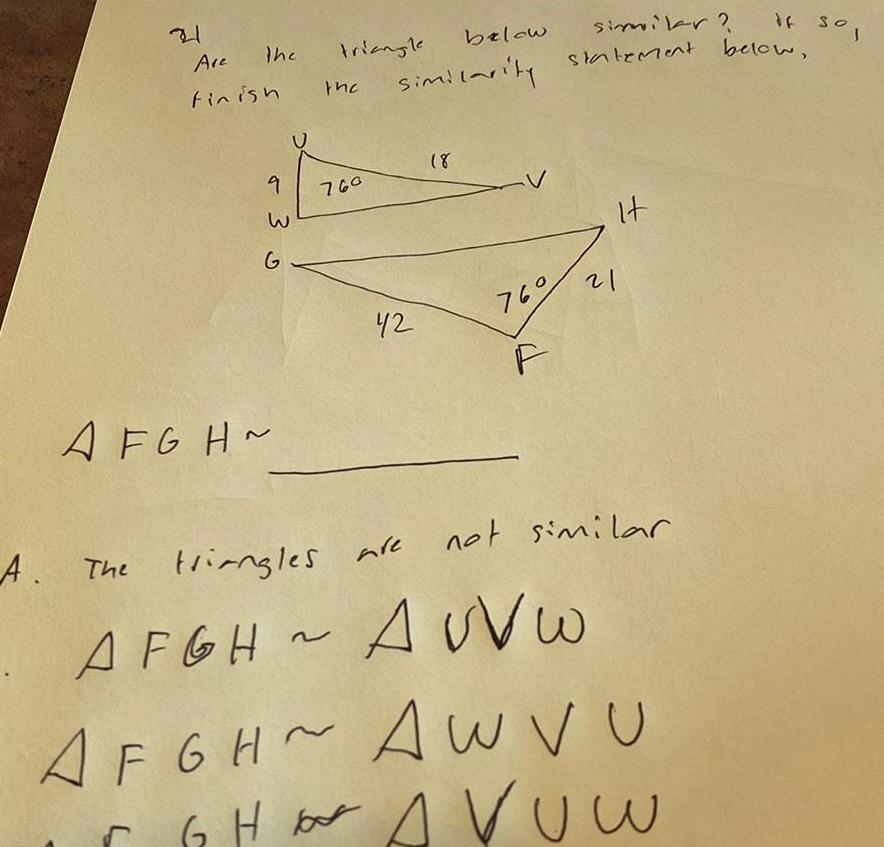 21
Are the triangle below similar? If so,
finish the similarity statement below,
U
18
9
76°
V
W
H
G
76°
21
42
F
Δ F G H ~
A. The triangles are not similar
Δ F G H ~ Δ U V W
Δ F G H ~ Δ W V U
F G H ~ Δ V U W